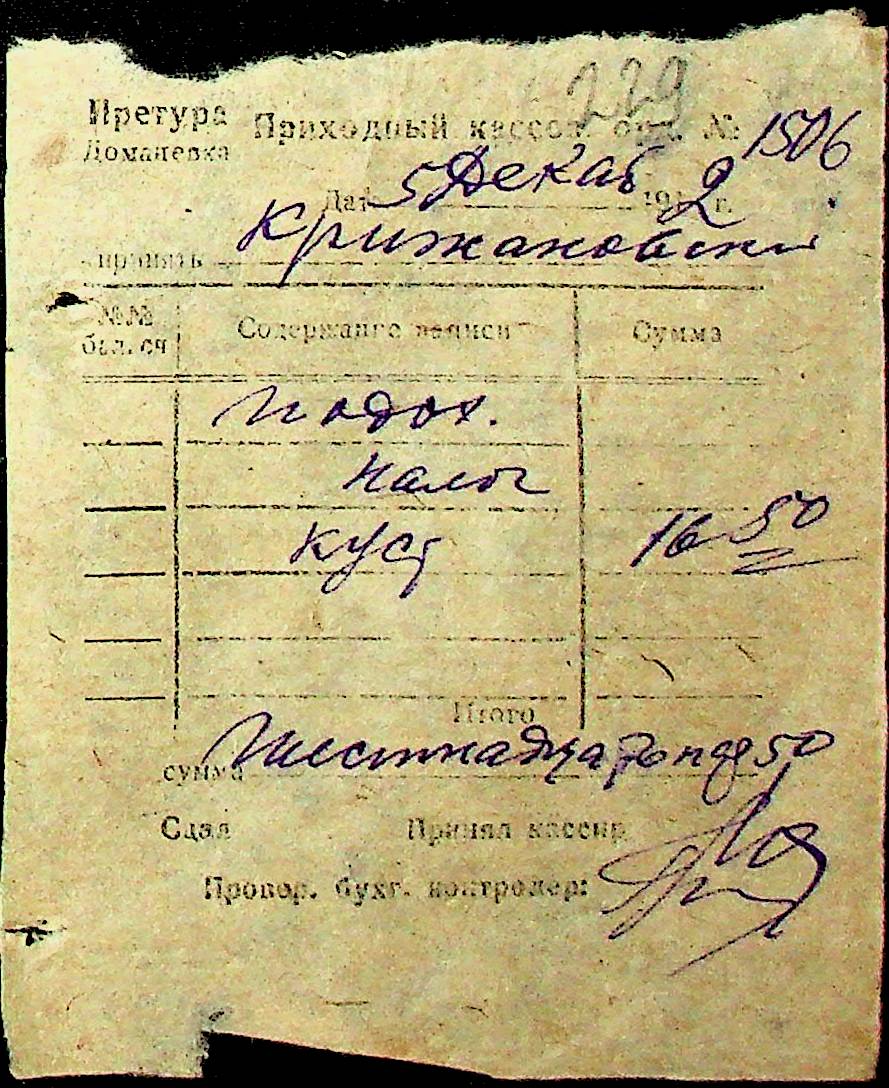 229
Претура Приходный кассов. орд. № 1506
Доманевка
Дата 5 Декаб 194 2 г.
принять Крижановски
№№ бал. сч Содержание записи Сумма
Подох.
налог
куст 16 50
Итого
сумма Шестнадцать 50
Сдал Принял кассир
Провер. бухг. контролер: